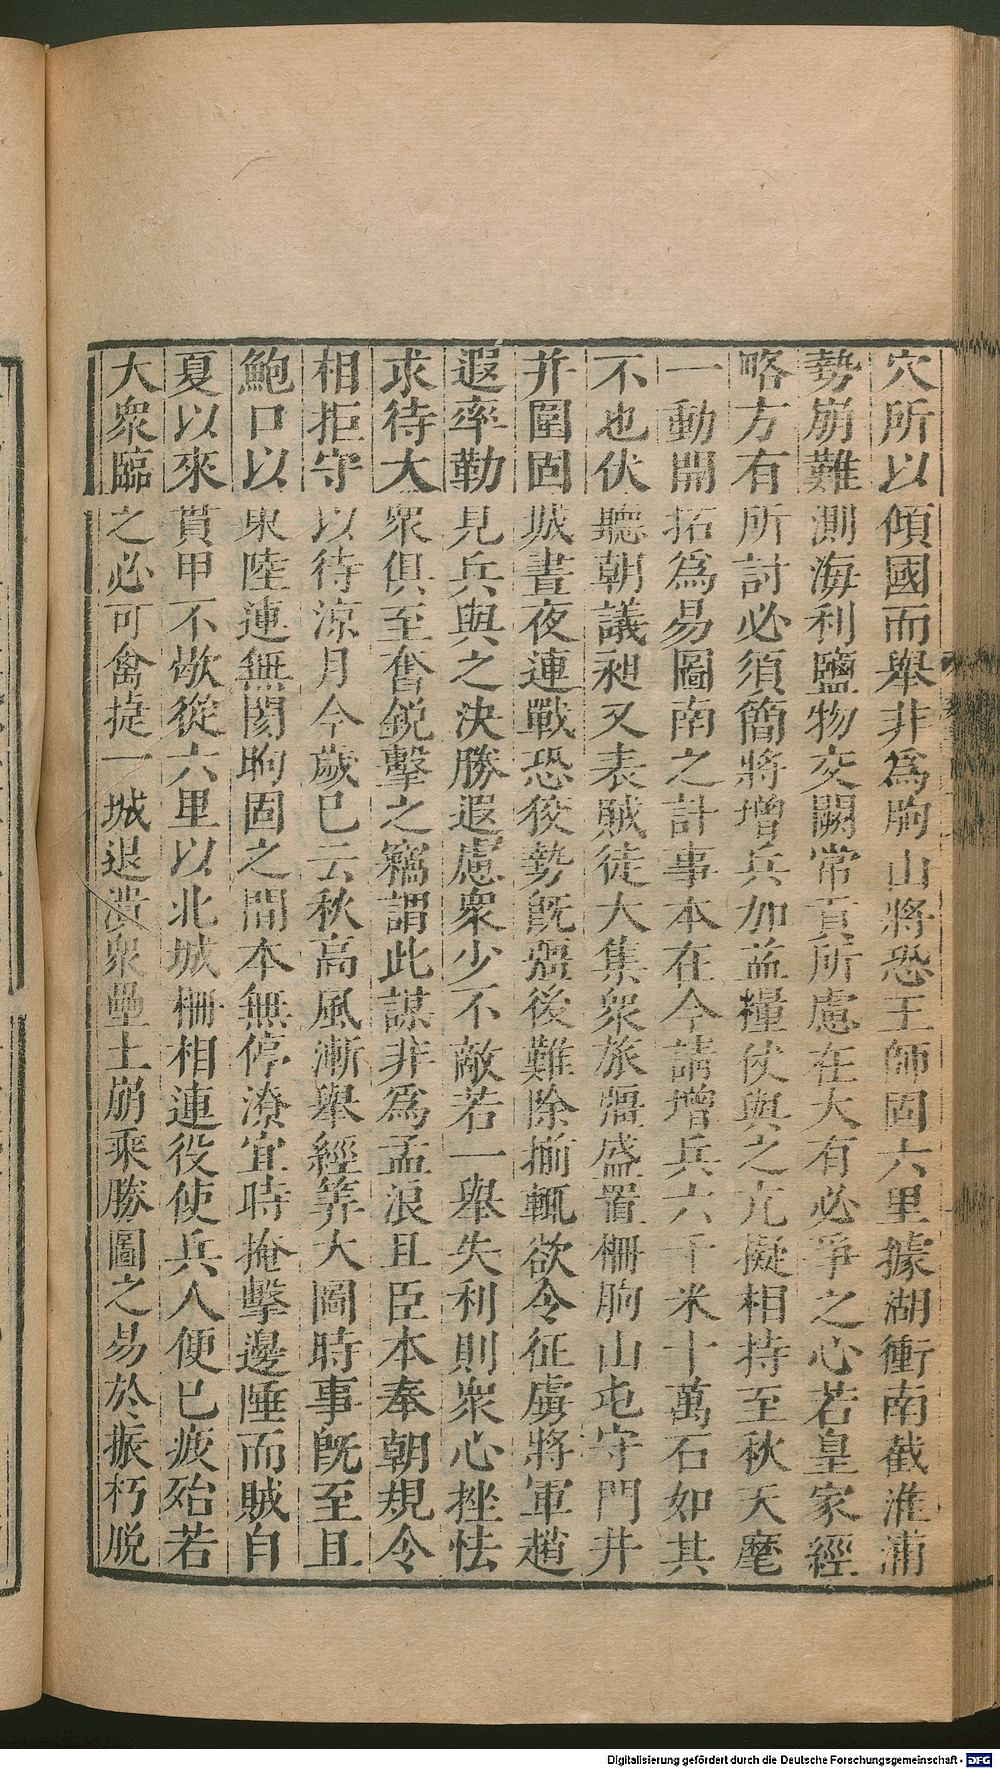 穴所以傾國而舉非爲朐山將恐王師固六里據湖衝南截淮浦
勢崩難測海利鹽物交闕常貢所慮在大有必爭之心若皇家經
略方有所討必須簡將增兵加益糧仗與之亢擬相持至秋天麾
一動開拓爲易圖南之計事本在今請增兵六千米十萬石如其
不也伏聽朝議昶又表賊徒大集衆旅彊盛置柵朐山屯守門井
并圍固城晝夜連戰恐狡勢旣彊後難除揃輒欲令征虜將軍趙
遐率勒見兵與之決勝遐慮衆少不敵若一舉失利則衆心挫怯
求待大衆俱至奮銳擊之竊謂此謀非爲孟浪且臣本奉朝規令
相拒守以待涼月今歲已云秋高風漸舉經筭大圖時事旣至且
鮑口以東陸連無閡朐固之間本無停潦宜時掩擊邊陲而賊自
夏以來貫甲不歇從六里以北城柵相連役使兵人便已疲殆若
大衆臨之必可禽捷一城退潰衆壘土崩乘勝圖之易於振朽脫
Digitalisierung gefördert durch die Deutsche Forschungsgemeinschaft - DFG